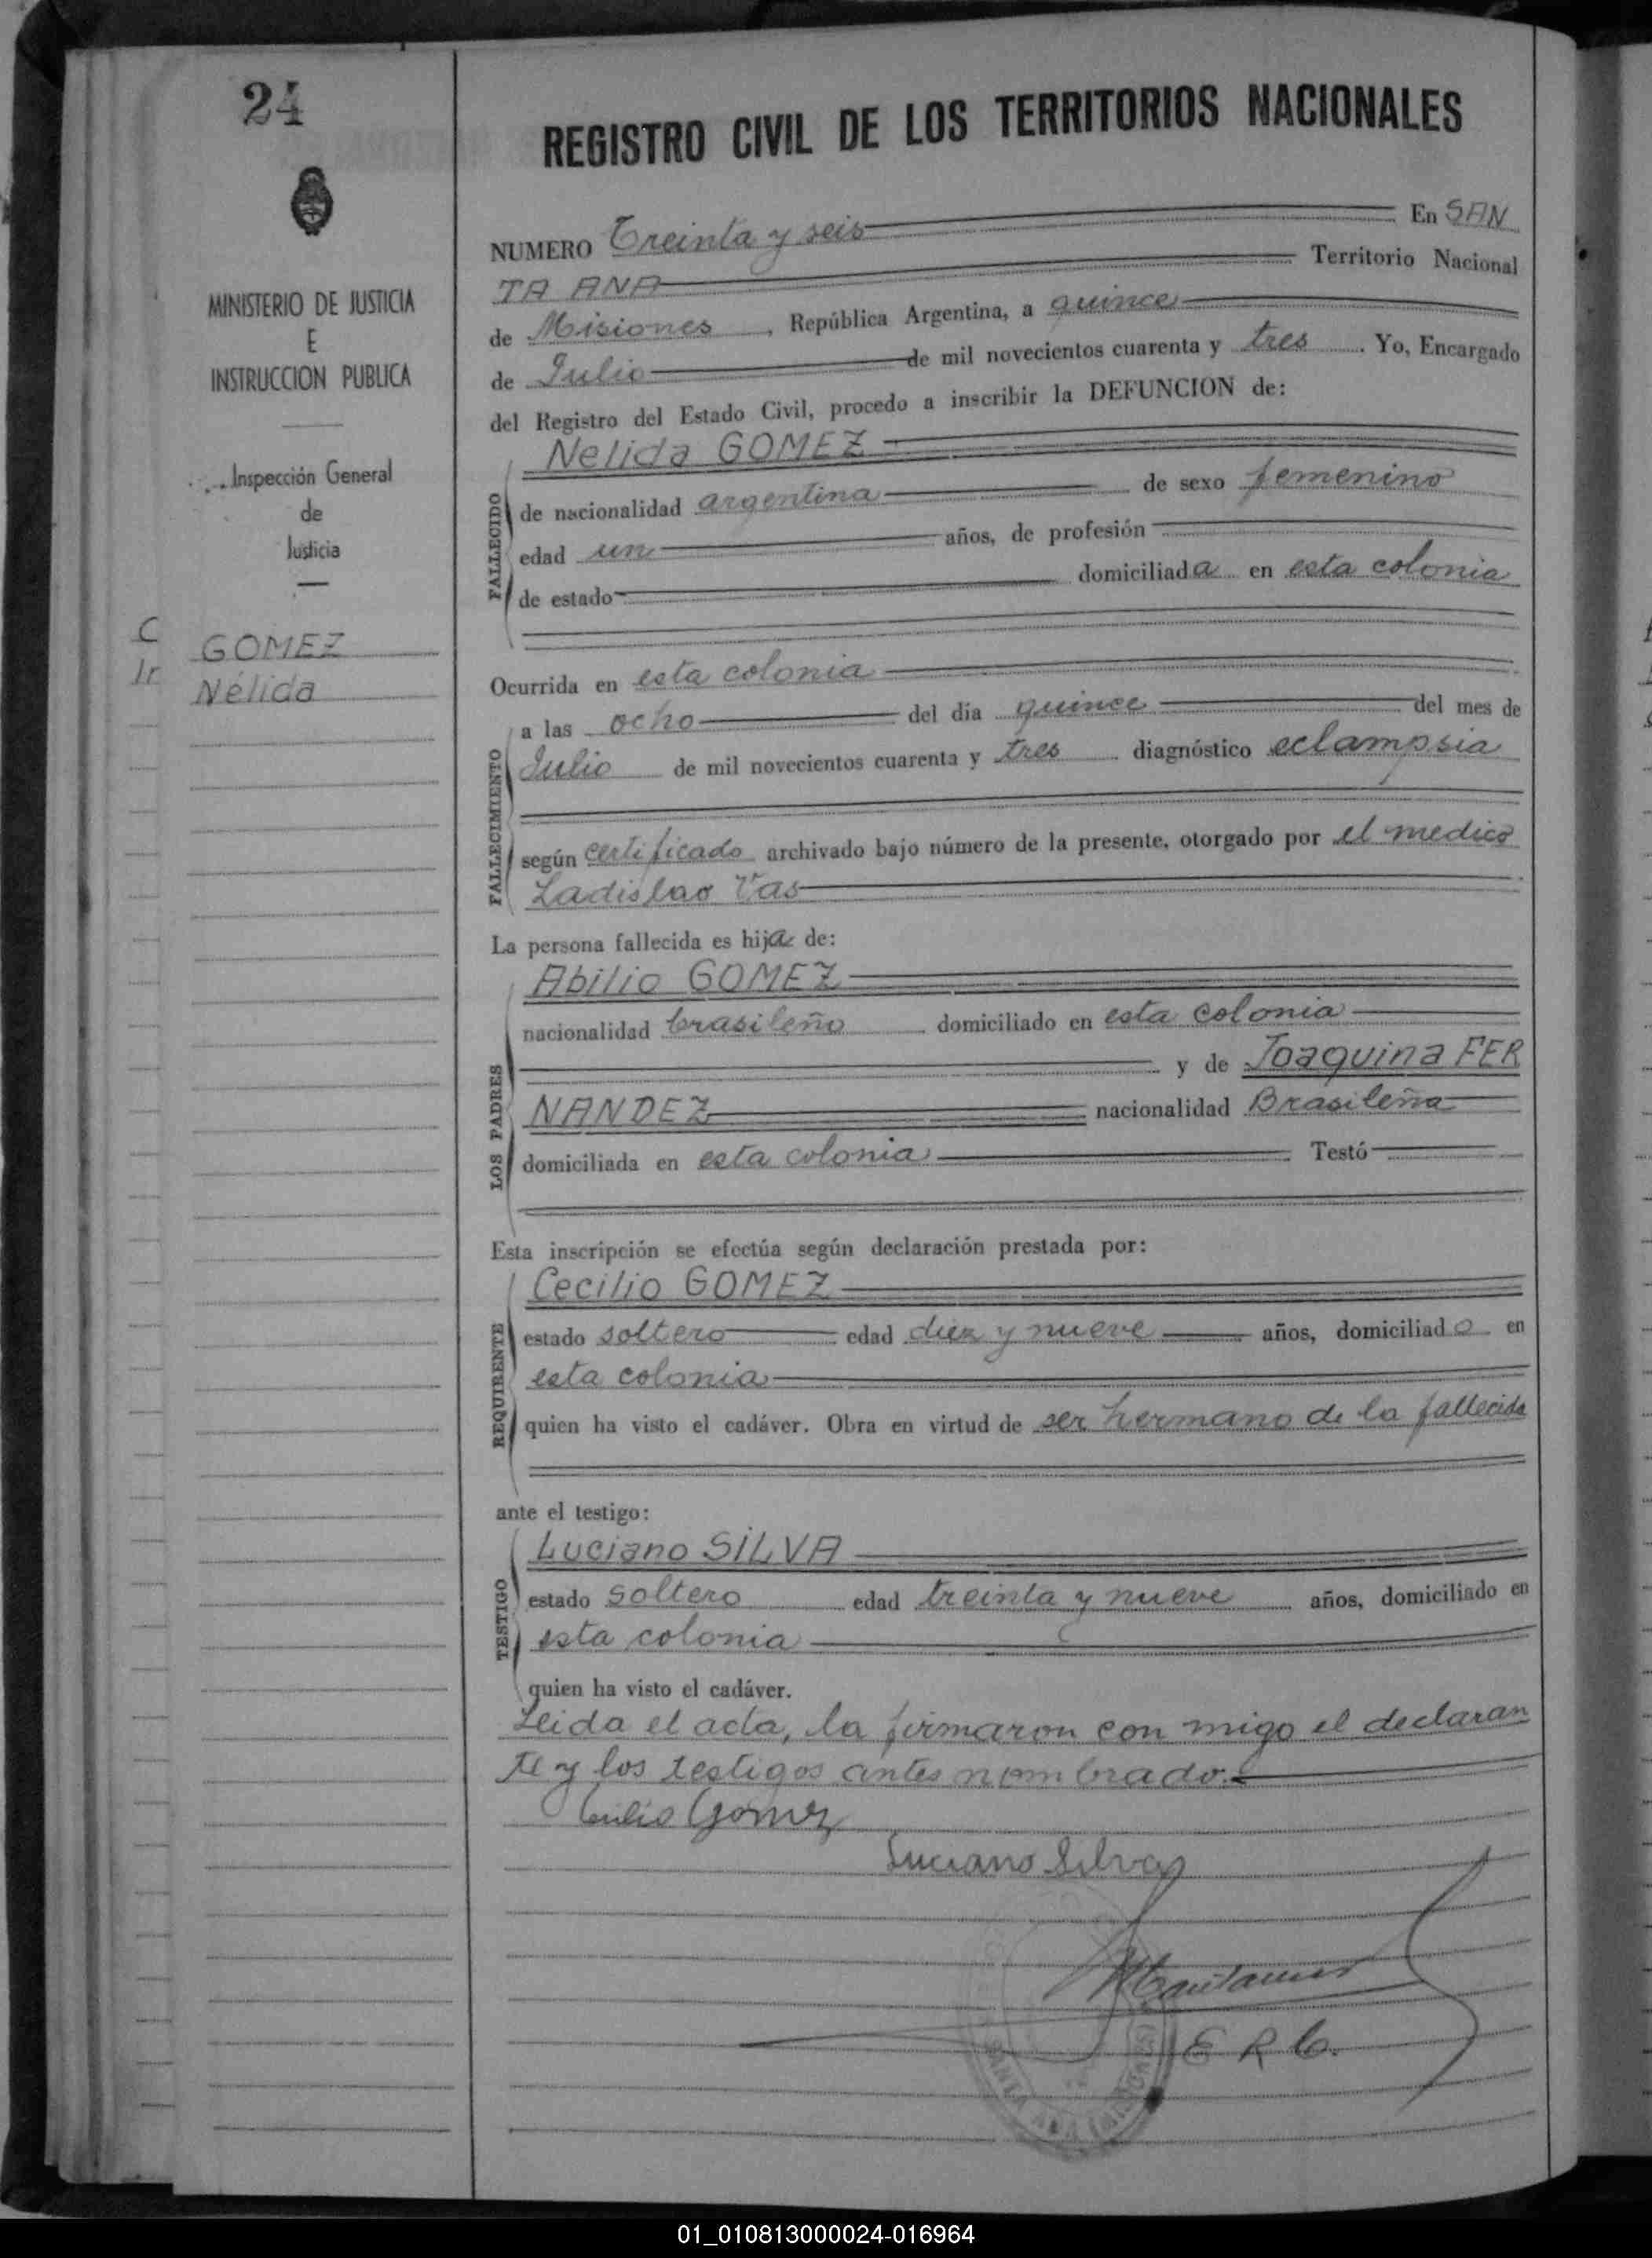 24
MINISTERIO DE JUSTICIA
E
INSTRUCCION PUBLICA
Inspección General
de
Justicia
C GOMEZ
Ir Nélida
REGISTRO CIVIL DE LOS TERRITORIOS NACIONALES
NUMERO Treinta y seis En SAN
TA ANA Territorio Nacional
de Misiones, República Argentina, a quince
de Julio de mil novecientos cuarenta y tres. Yo, Encargado
del Registro del Estado Civil, procedo a inscribir la DEFUNCION de:
FALLECIDO
Nelida GOMEZ
de nacionalidad argentina de sexo femenino
edad un años, de profesión
de estado domiciliada en esta colonia
Ocurrida en esta colonia
FALLECIMIENTO
a las ocho del día quince del mes de
Julio de mil novecientos cuarenta y tres diagnóstico eclampsia
según certificado archivado bajo número de la presente, otorgado por el medico
Ladislao Vas
La persona fallecida es hija de:
LOS PADRES
Abilio GOMEZ
nacionalidad brasileño domiciliado en esta colonia
y de Joaquina FER
NANDEZ nacionalidad Brasileña
domiciliada en esta colonia Testó
Esta inscripción se efectúa según declaración prestada por:
REQUIRENTE
Cecilio GOMEZ
estado soltero edad diez y nueve años, domiciliado en
esta colonia
quien ha visto el cadáver. Obra en virtud de ser hermano de la fallecida
ante el testigo:
TESTIGO
Luciano SILVA
estado soltero edad treinta y nueve años, domiciliado en
esta colonia
quien ha visto el cadáver.
Leida el acta, la firmaron con migo el declaran
te y los testigos antes nombrado.
Cecilio Gomez
Luciano Silva
E R C.
SANTA ANA (MISIONES)
01_010813000024-016964